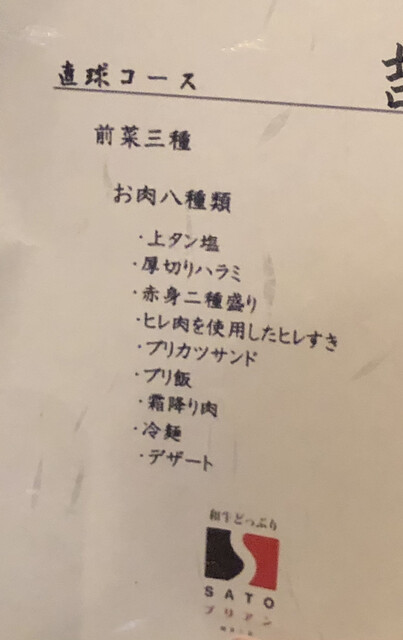 直球コース
前菜三種
お肉八種類
・上タン塩
・厚切りハラミ
・赤身二種盛り
・ヒレ肉を使用したヒレすき
・ブリカツサンド
・ブリ飯
・霜降り肉
・冷麺
・デザート
和牛どっぷり
SATO
ブリアン